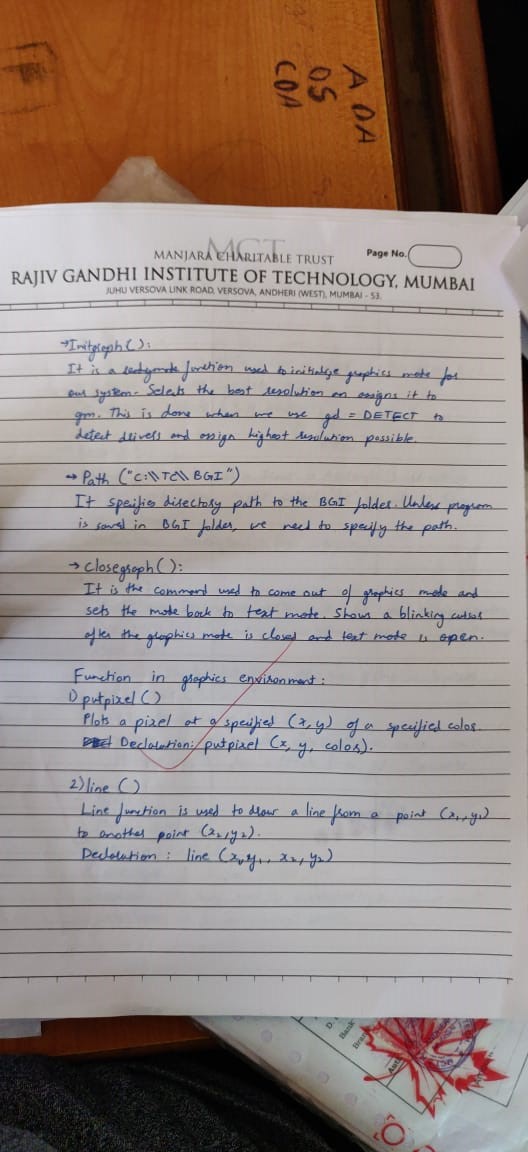 A DA
OS
COA
MCT
MANJARA CHARITABLE TRUST
Page No.
RAJIV GANDHI INSTITUTE OF TECHNOLOGY, MUMBAI
JUHU VERSOVA LINK ROAD, VERSOVA, ANDHERI (WEST), MUMBAI - 53.
→ Initgraph():
It is a readymade function used to initialize graphics mode for
our system. Selects the best resolution an assigns it to
gm. This is done when we use gd = DETECT to
detect drivers and assign highest resolution possible.
→ Path ("C:\\TC\\BGI")
It specifies directory path to the BGI folder. Unless program
is saved in BGI folder, we need to specify the path.
→ Closegraph():
It is the command used to come out of graphics mode and
sets the mode back to text mode. Shows a blinking cursor
after the graphics mode is closed and text mode is open.
Function in graphics environment:
1) putpixel()
Plots a pixel at a specified (x,y) of a specified color.
Declaration: putpixel (x, y, color).
2) line ()
Line function is used to draw a line from a point (x₁,y₁)
to another point (x₂,y₂).
Declaration : line (x₁,y₁, x₂,y₂)
Bank